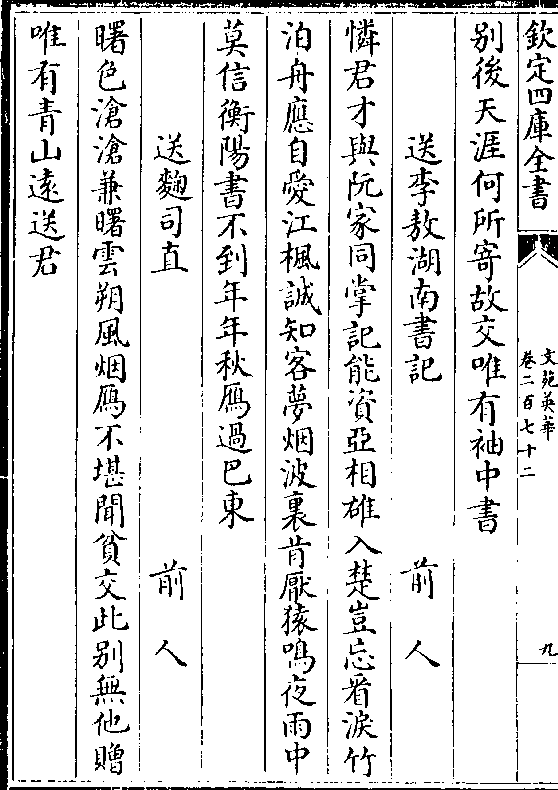 欽定四庫全書
文苑英華
卷二百七十二
九
别後天涯何所寄故交唯有袖中書
送李敖湖南書記
前人
憐君才與阮家同掌記能資亞相雄入楚豈忘看淚竹
泊舟應自愛江楓誠知客夢烟波裏肯厭猿鳴夜雨中
莫信衡陽書不到年年秋鴈過巴東
送麴司直
前人
曙色滄滄兼曙雲朔風烟鴈不堪聞貧交此别無他贈
唯有青山遠送君